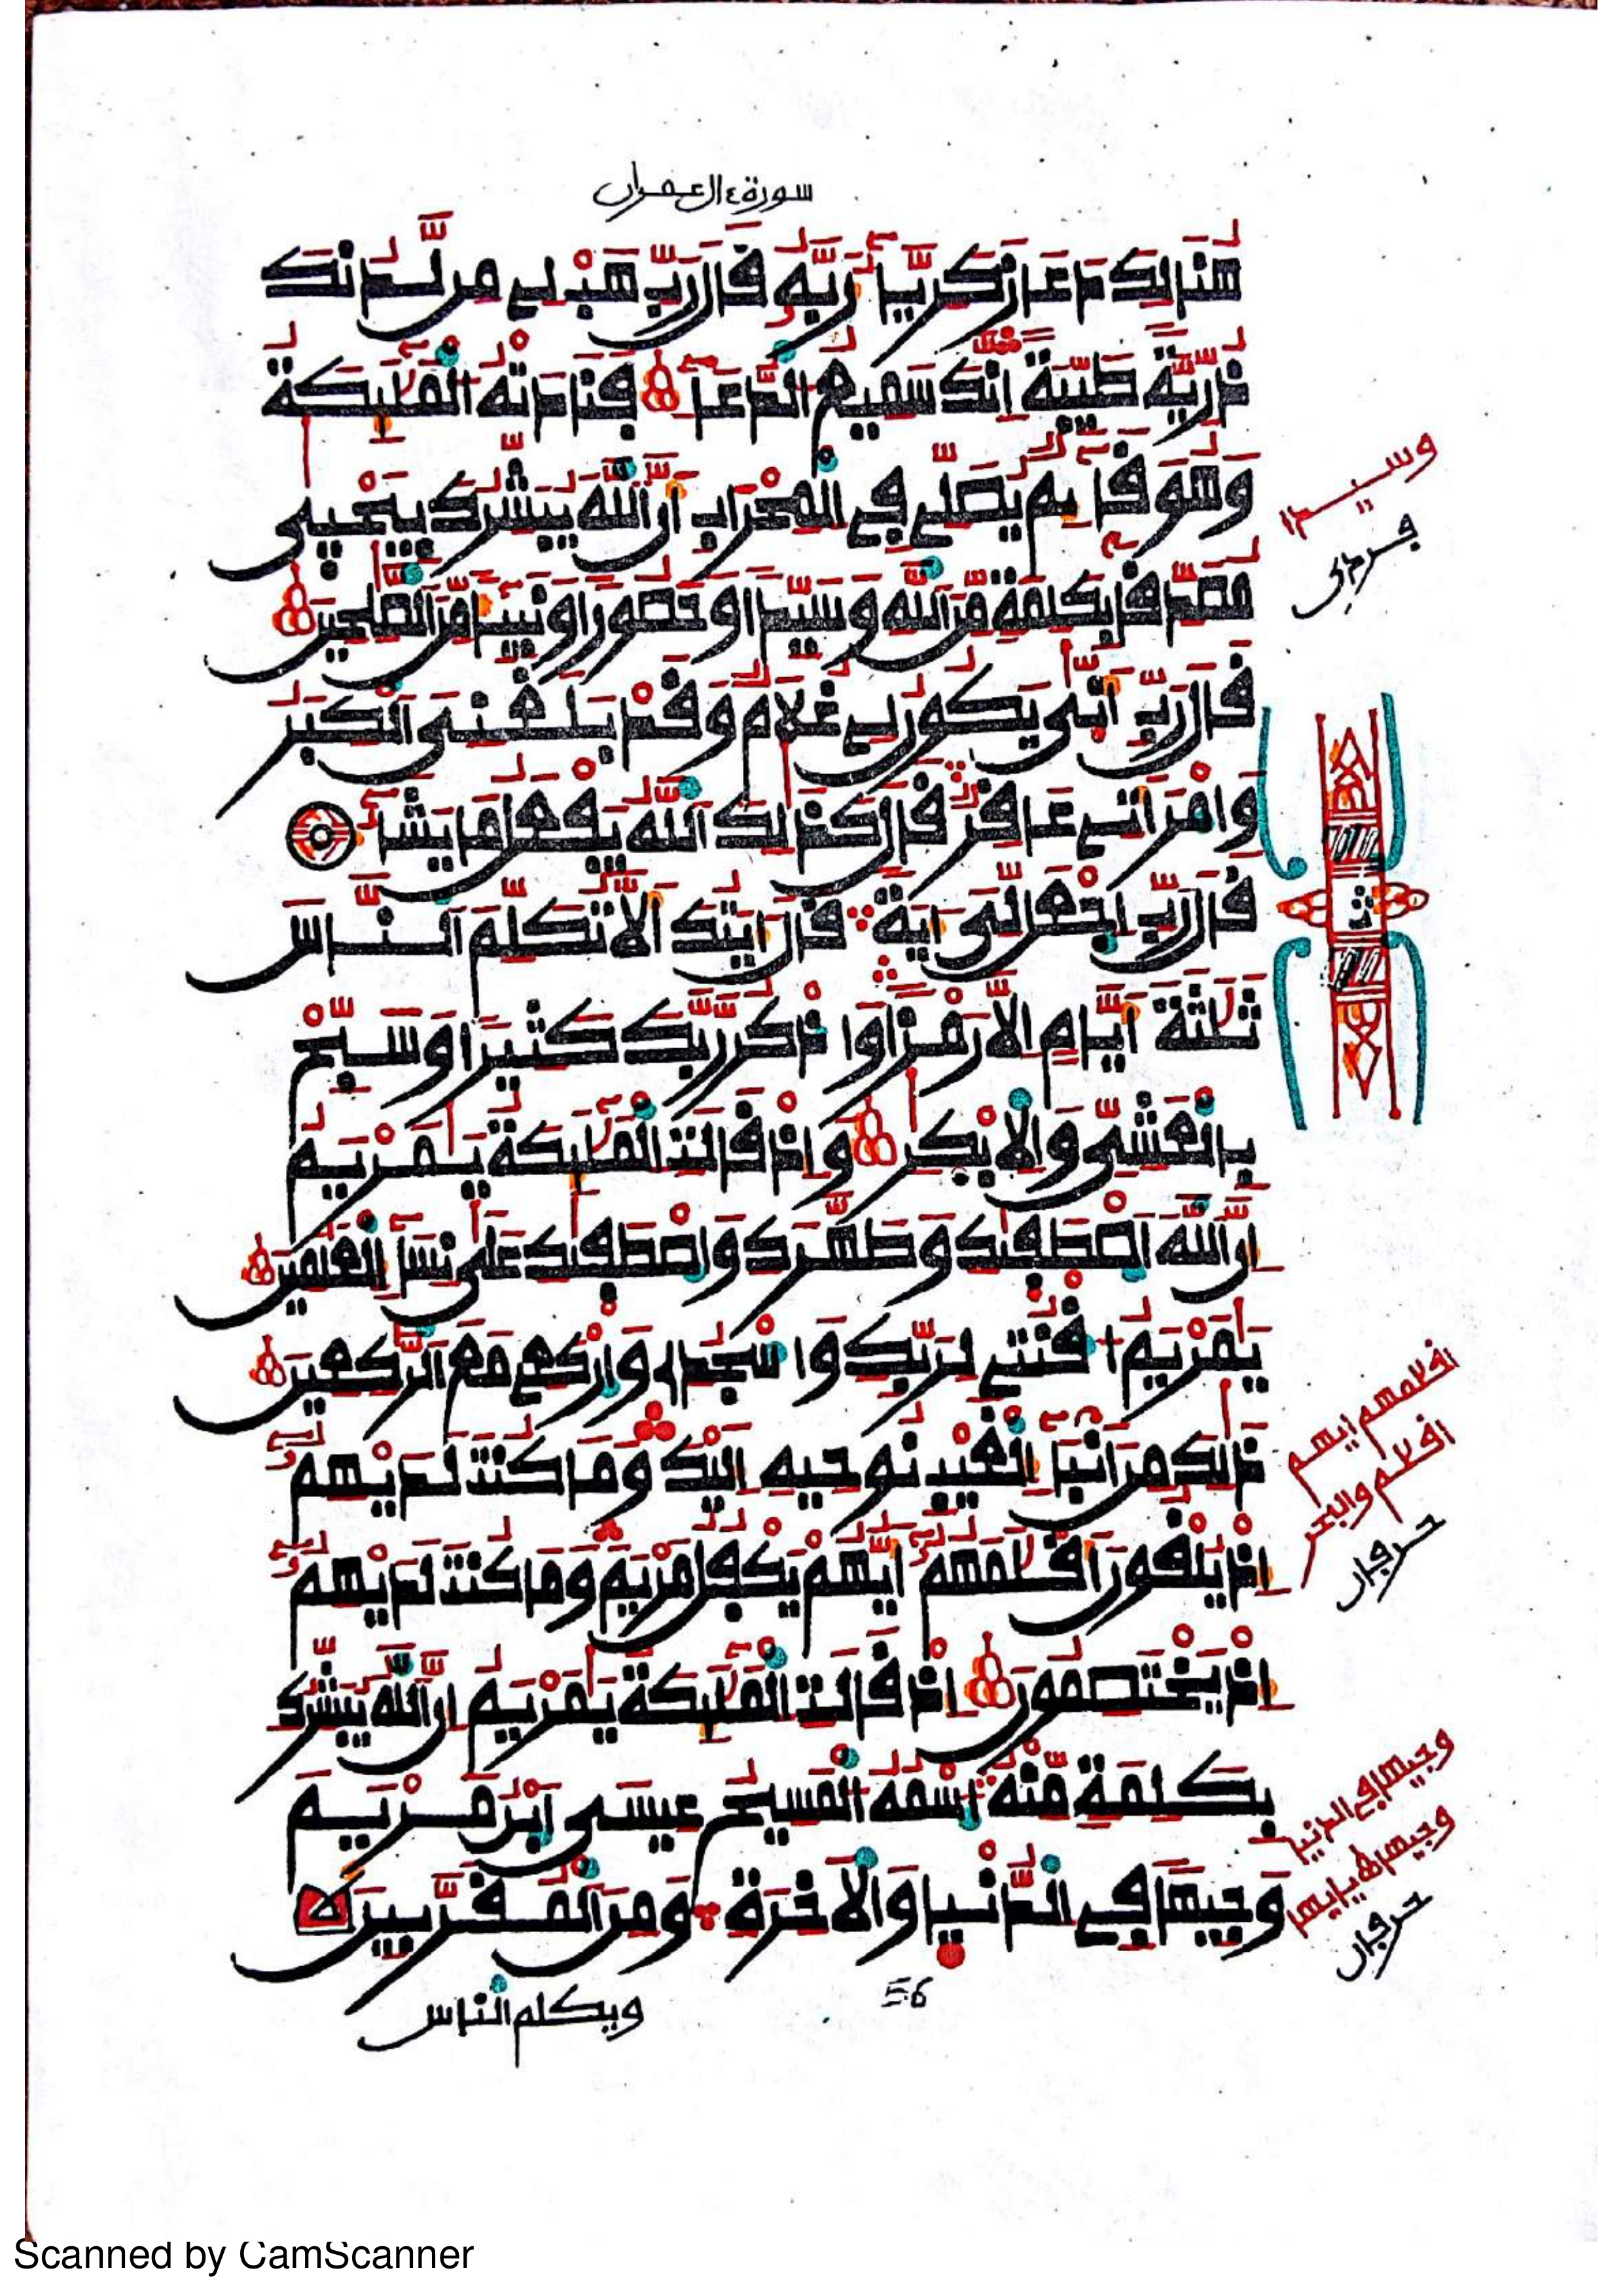 سورة ءال عمران
هنالك دعا زكريا ربه قال رب هب لي من لدنك
ذرية طيبة إنك سميع الدعا فنادته الملئكة
وهو قائم يصلي في المحراب أن الله يبشرك بيحيى
مصدقا بكلمة من الله وسيدا وحصورا ونبيئا من الصلحين
قال رب أنى يكون لي غلام وقد بلغني الكبر
وامرأتي عاقر قال كذلك الله يفعل ما يشا
قال رب اجعل لي ءاية قال ءايتك ألا تكلم الناس
ثلثة أيام إلا رمزا واذكر ربك كثيرا وسبح
بالعشي والابكر وإذ قالت الملئكة يمريم
إن الله اصطفيك وطهرك واصطفيك على نسا العلمين
يمريم اقنتي لربك واسجدي واركعي مع الركعين
ذلك من أنبا الغيب نوحيه إليك وما كنت لديهم
إذ يلقون أقلمهم أيهم يكفل مريم وما كنت لديهم
إذ يختصمون إذ قالت الملئكة يمريم إن الله يبشرك
بكلمة منه اسمه المسيح عيسى ابن مريم
وجيها في الدنيا والاخرة ومن المقربين
56
ويكلم الناس
وسيدا
اقلامهم ايهم
اقلام والبحر
حرفان
وجيها في الدنيا
حرفان
Scanned by CamScanner